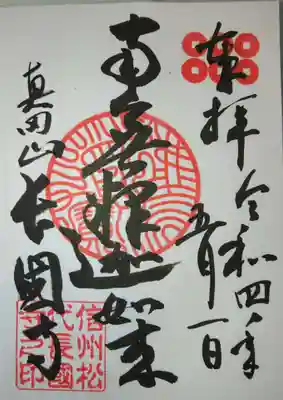 奉拝
令和四年
五月一日
南無釋迦如来
真田山
長國寺
信州松
代長國
寺之印